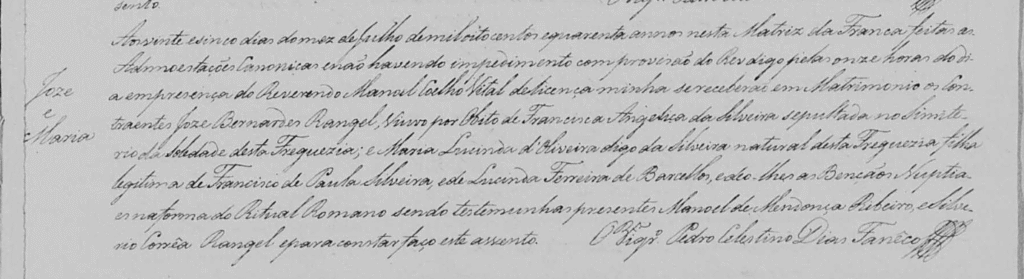 sento.
Aos vinte e sinco dias do mez de Julho de mil oito centos e quarenta annos nesta Matriz da Franca feitas as
Admoestações Canonicas e não havendo impedimento com provisão do Rev digo pelas onze horas do di
a em prezença do Reverendo Manoel Coelho Vital de licença minha se receberão em Matrimonio os Con
Joze
e
Maria
traentes Joze Bernardes Rangel, Viuvo por Obito de Francisca Angelica da Silveira sepultada no Simite
rio da Soledade desta Freguezia; e Maria Lucinda d'Oliveira digo da Silveira natural desta Freguezia filha
legitima de Francisco de Paula Silveira, e de Lucinda Ferreira de Barcellos, e deo-lhes as Bençãos Nuptia
es na forma do Ritual Romano sendo testemunhas prezentes Manoel de Mendonça Ribeiro, e Silve
rio Corrêa Rangel e para constar faço este assento. O Vigrº. Pedro Celestino Dias